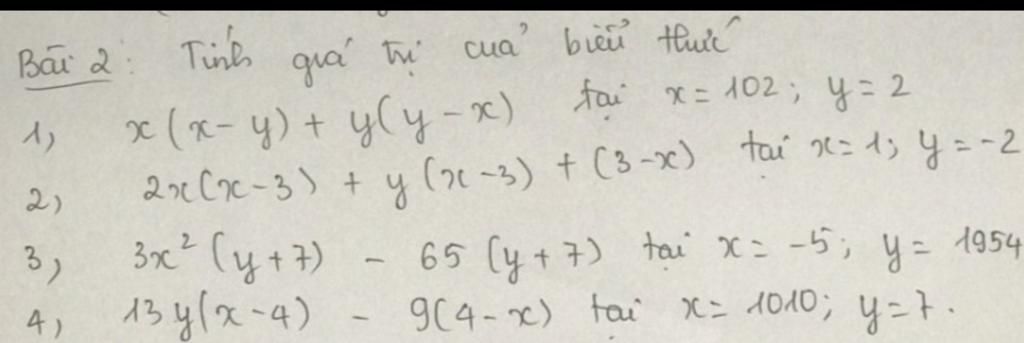 Bài 2: Tính giá trị của biểu thức
1, x(x-y) + y(y-x) tại x = 102; y = 2
2, 2x(x-3) + y(x-3) + (3-x) tại x = 1; y = -2
3, 3x² (y+7) - 65 (y+7) tại x = -5; y = 1954
4, 13y(x-4) - 9(4-x) tại x = 1010; y = 7.